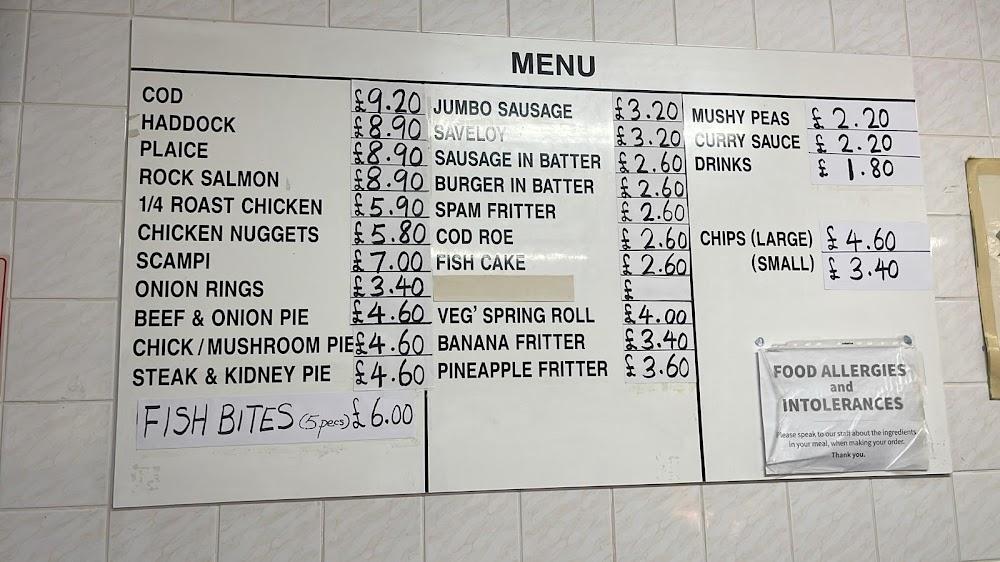 MENU
COD £9.20
HADDOCK £8.90
PLAICE £8.90
ROCK SALMON £8.90
1/4 ROAST CHICKEN £5.90
CHICKEN NUGGETS £5.80
SCAMPI £7.00
ONION RINGS £3.40
BEEF & ONION PIE £4.60
CHICK / MUSHROOM PIE £4.60
STEAK & KIDNEY PIE £4.60
FISH BITES (5 pecs) £6.00
JUMBO SAUSAGE £3.20
SAVELOY £3.20
SAUSAGE IN BATTER £2.60
BURGER IN BATTER £2.60
SPAM FRITTER £2.60
COD ROE £2.60
FISH CAKE £2.60
£
VEG' SPRING ROLL £4.00
BANANA FRITTER £3.40
PINEAPPLE FRITTER £3.60
MUSHY PEAS £2.20
CURRY SAUCE £2.20
DRINKS £1.80
CHIPS (LARGE) £4.60
(SMALL) £3.40
FOOD ALLERGIES
and
INTOLERANCES
Please speak to our staff about the ingredients
in your meal, when making your order.
Thank you.